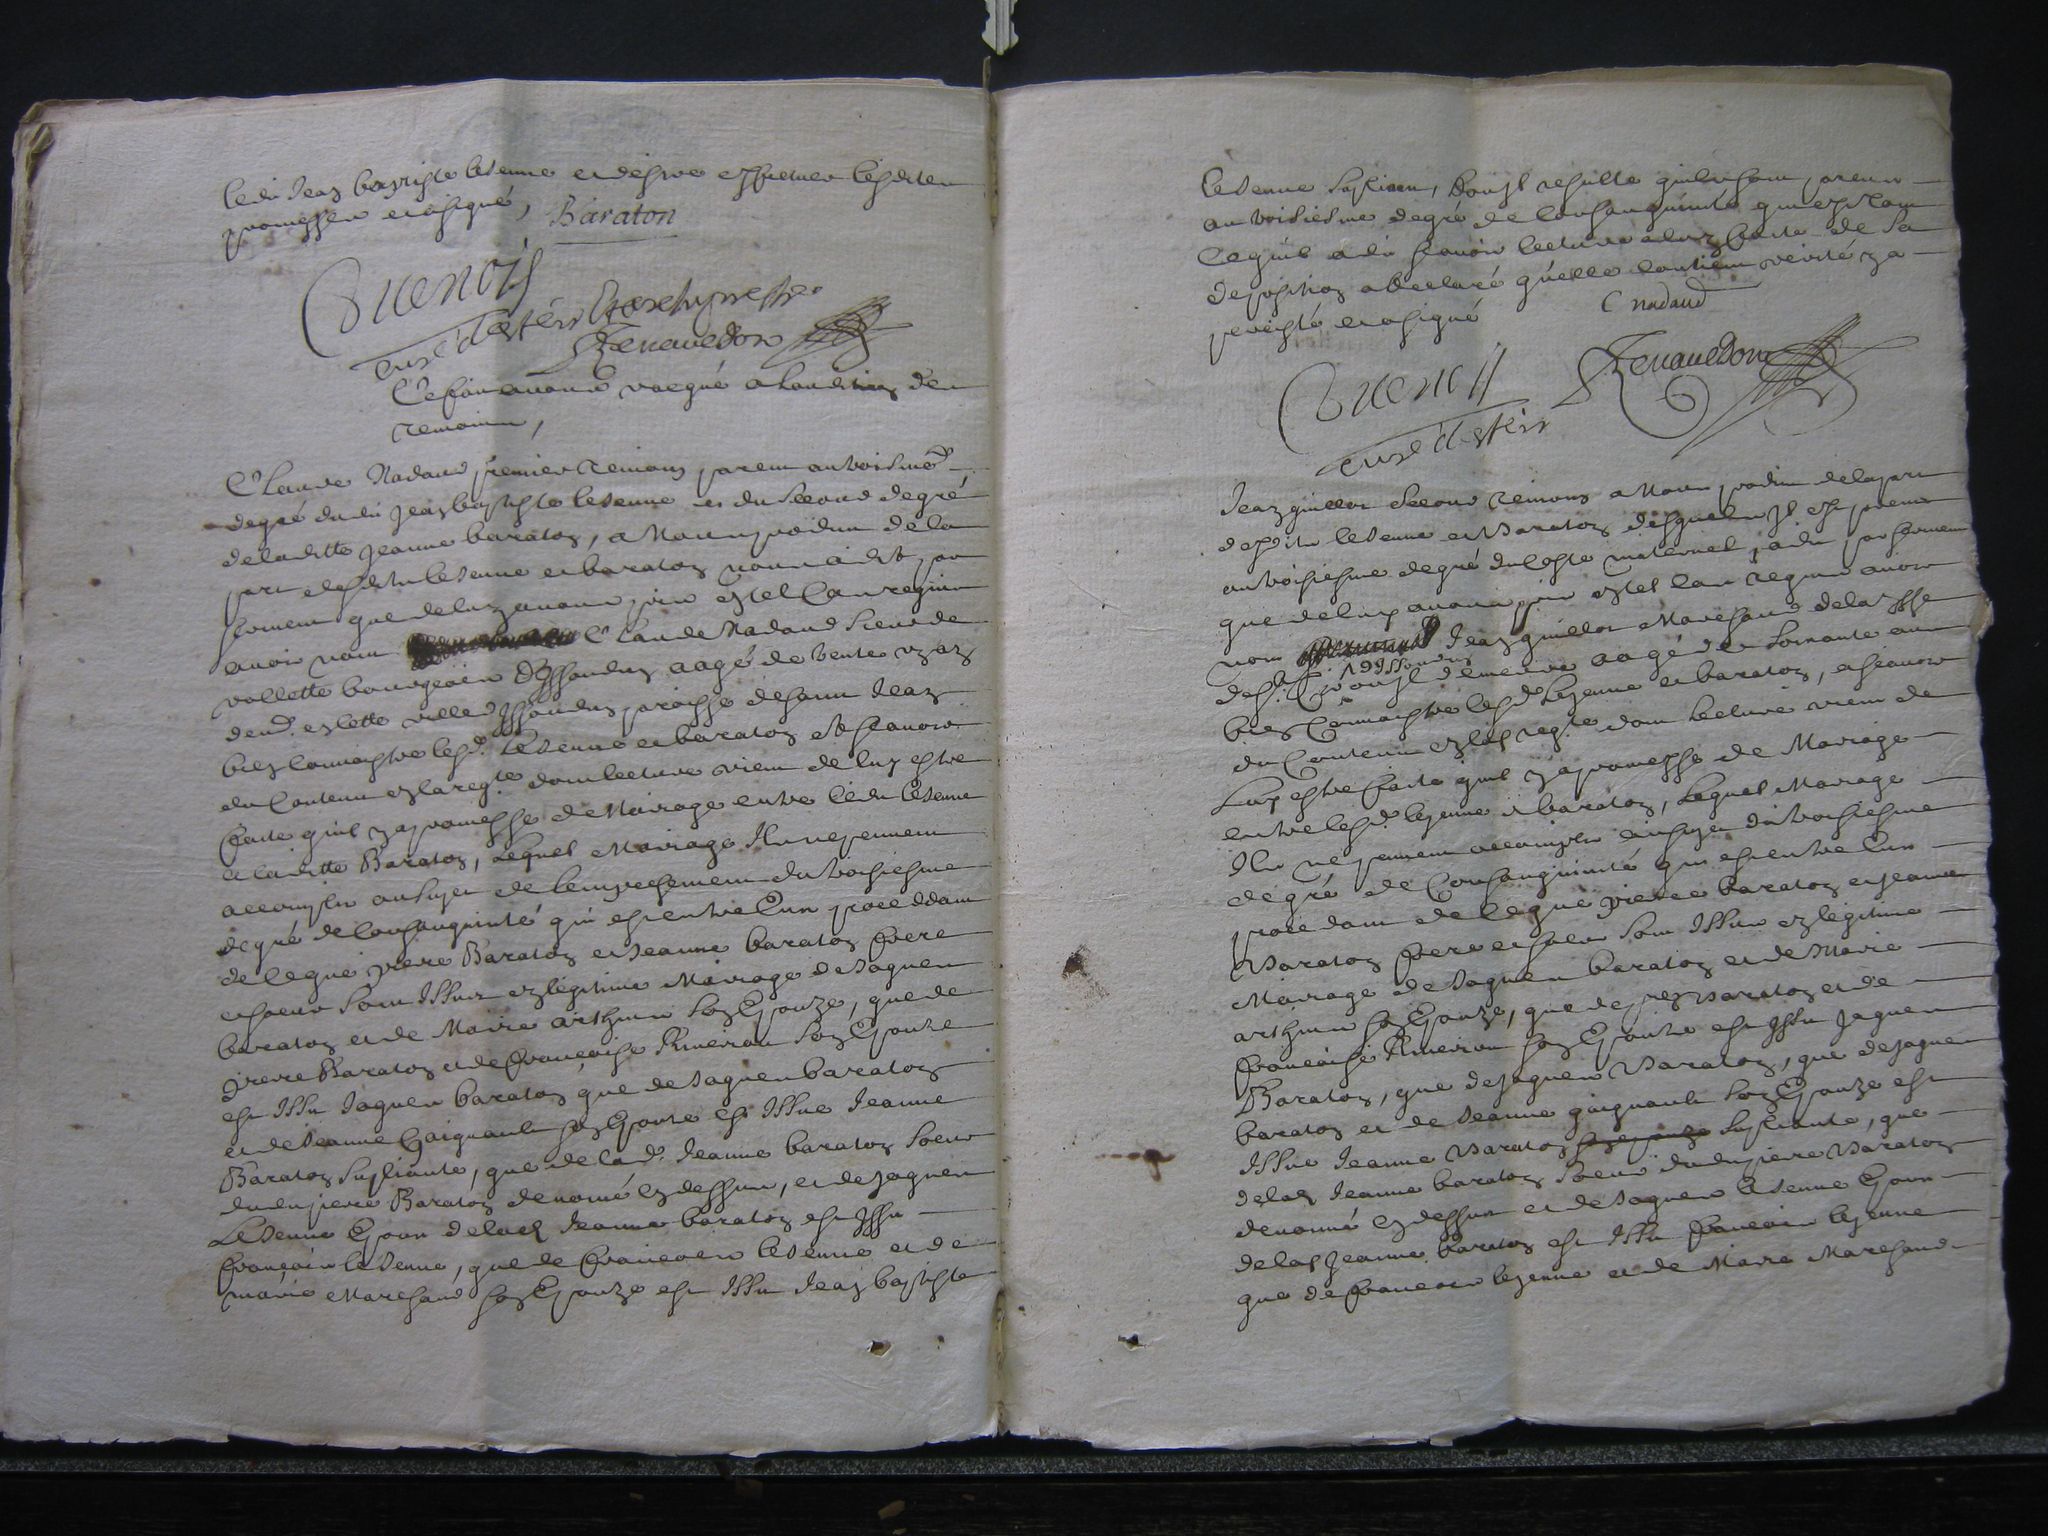 ledit Jean baptiste lejeune et desire effectuer lesdites
promesses et a signé,
Baraton
Guenois
curé d'esterr
Renauldon
Ce fait avons vacqué a laudition des
temoins,
Claude Nadaud premier temoin parent au troisme
degré dudit Jean baptiste lejeune et du second degré
de laditte Jeanne baraton, a Nous produit de la
part desdits lejeune et baraton nous a dit par
serment que de luy avons pris en tel cas requis
avoir nom Claude Nadaud sieur de
vallette bourgeois dissoudun aagé de trente un an
demt. en cette ville dissoudun paroisse de saint Jean
bien connaistre lesd. lejeune et baraton et scavoir
du contenu en la reqte dont lecture vient de luy estre
faite quil y a promesse de Mariage entre ledit lejeune
et laditte Baraton, lequel Mariage Ils ne peuvent
accomplir au sujet de lempeschement du troisiesme
degré de consanguinité qui est entre Eux proceddant
de ce que pierre Baraton et Jeanne baraton frere
et soeur sont Issus en légitime Mariage de Jaques
baraton et de Marie arthuis son Epouze, que de
pierre Baraton et de françoise Rivierau son Epouze
est Issu Jaques baraton que de Jaques baraton
et de Jeanne Gaignault son Epouze est Issue Jeanne
Baraton supliante, que de lad. Jeanne baraton soeur
dudit pierre Baraton denomé cy dessus, et de Jaques
Lejeune Epoux de lad Jeanne baraton est Issu
françois lejeune, que de françois lejeune et de
marie Marchand son Epouze est Issu Jean baptiste
lejeune supliant, dou Il resulte quils sont parens
au troisiesme degré de consanguinité qui est tout
ce quil a dit scavoir lecture a luy faite de sa
deposition a declaré quelle contient verité y a
persisté et a signé
C nadaud
Guenois
curé d'esterr
Renauldon
Jean guillot second temoin a Nous produit de la part
desdits lejeune et Baraton desquels Il est parent
au troisiesme degré du costé maternel, a dit par serment
que de luy avons pris en tel cas requis avoir
nom Jean guillot Marchand de la psse
de st. Cir dissoudun ou Il demeure aagé de soixante ans
bien Connaistre lesd. lejeune et baraton, et scavoir
du Contenu en lad reqte dont lecture vient de
Luy estre faite quil y a promesse de Mariage
entre lesd. lejeune et baraton, Lequel Mariage
Ils ne peuvent accomplir au sujet du troisiesme
degré de Consanguinité qui est entre Eux
procedant de ce que pierre baraton et Jeanne
Baraton frere et soeur sont Issus en légitime
Mariage de Jaques baraton et de Marie
arthuis son Epouze, que de pre Baraton et de
françoise Rivierau son Epouze est Issu Jaques
Baraton, que de Jaques Baraton, que de Jaques
baraton et de Jeanne gaignault son Epouze est
Issue Jeanne Baraton son epouze supliante, que
de lad Jeanne baraton soeur dudit pierre Baraton
denommé cy dessus et de Jaques lejeune Epoux
de lad Jeanne baraton est Issu françois lejeune
que de francois lejeune et de Marie Marchand